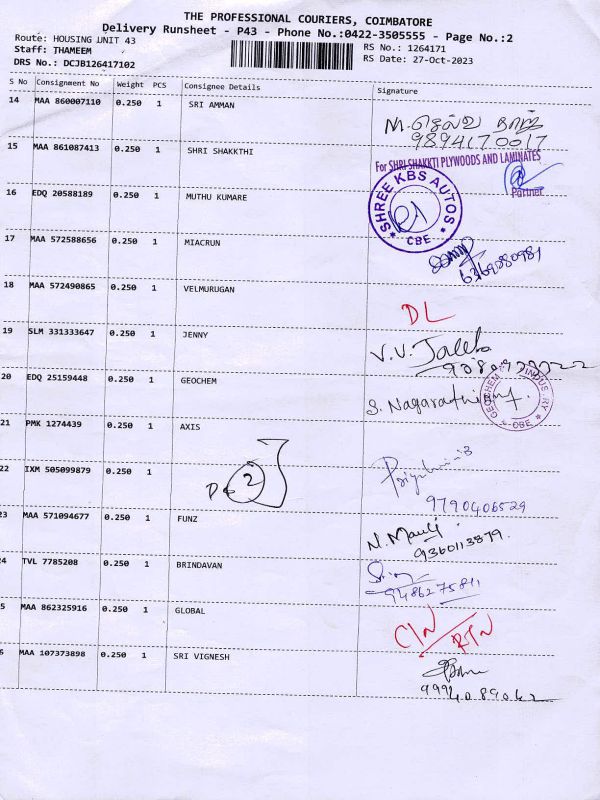 THE PROFESSIONAL COURIERS, COIMBATORE
Delivery Runsheet - P43 - Phone No.:0422-3505555 - Page No.:2
Route: HOUSING UNIT 43
RS No.: 1264171
Staff: THAMEEM
RS Date: 27-Oct-2023
DRS No.: DCJB126417102
S No Consignment No Weight PCS Consignee Details Signature
14 MAA 860007110 0.250 1 SRI AMMAN
M. செல்வ நாதர்
9894170017
15 MAA 861087413 0.250 1 SHRI SHAKKTHI
For SHRI SHAKKTI PLYWOODS AND LAMINATES
Partner
16 EDQ 20588189 0.250 1 MUTHU KUMARE
SHREE KBS AUTOS
CBE
17 MAA 572588656 0.250 1 MIACRUN
6369080981
18 MAA 572490865 0.250 1 VELMURUGAN
DL
19 SLM 331333647 0.250 1 JENNY
V.V. Jaleb
20 EDQ 25159448 0.250 1 GEOCHEM
S. Nagarathinam
GEOCHEM INDUSTRY
CBE
21 PMK 1274439 0.250 1 AXIS
22 IXM 505099879 0.250 1
2
9790406529
23 MAA 571094677 0.250 1 FUNZ
N. Mauli
9360113879.
24 TVL 7785208 0.250 1 BRINDAVAN
9486275811
5 MAA 862325916 0.250 1 GLOBAL
C/N RTN
6 MAA 107373898 0.250 1 SRI VIGNESH
9994089042